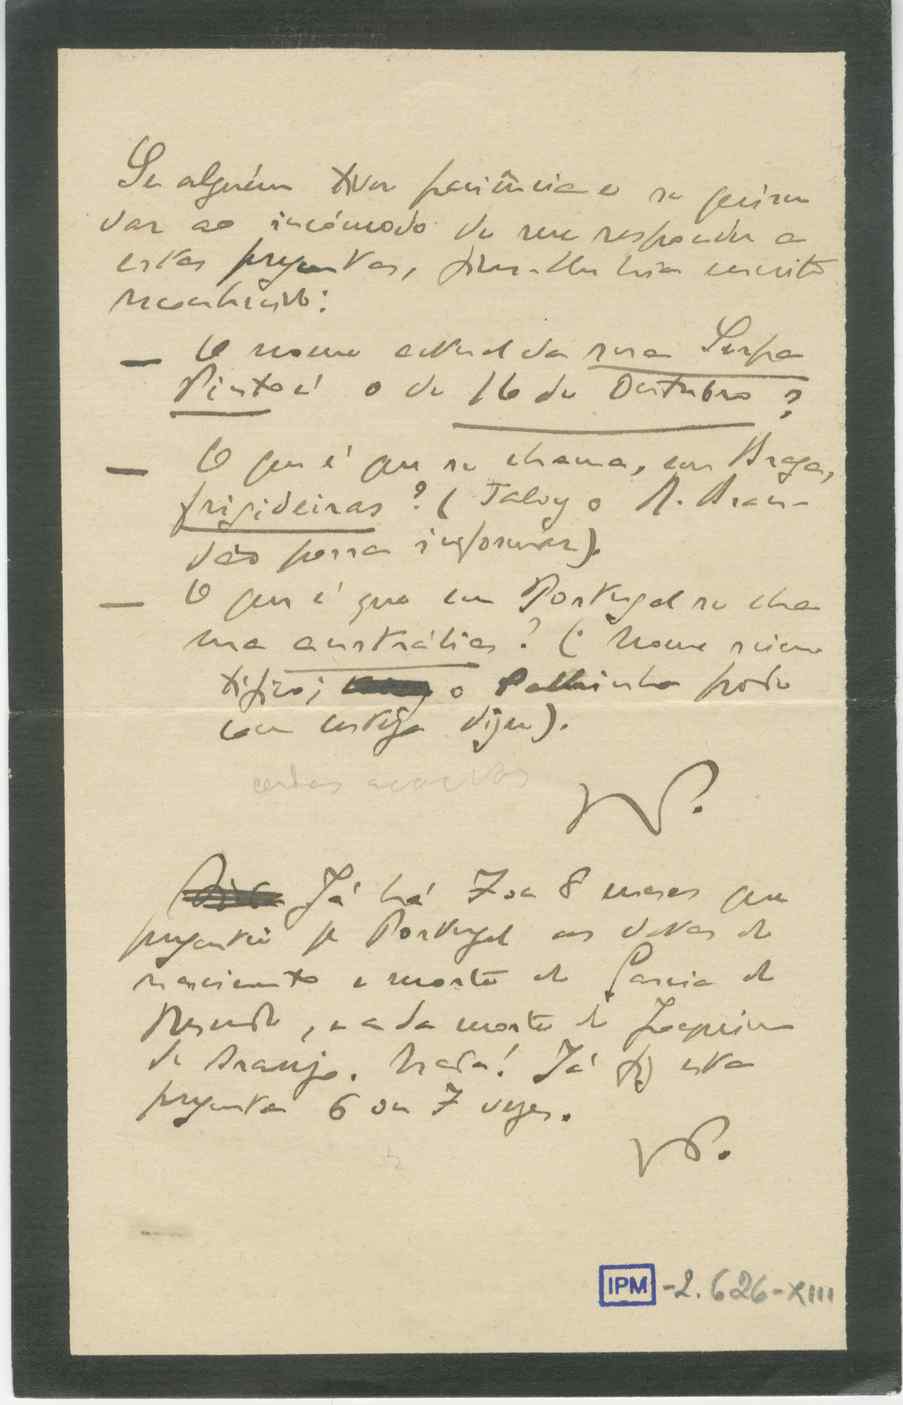 Se alguém tiver paciência e se quiser
dar ao incómodo de me responder a
estas preguntas, ficar-lhe hia muito
reconhecido:
— O nome actual da rua Serpa
Pinto é o de 16 de Outubro?
— O que é que se chama, em Braga,
frigideiras? (Talvez o R. Bran-
dão possa informar).
— O que é que em Portugal se cha
ma austrália? (Nome scien
tífico; o Palhinha pode
com certeza dizer).
certas acacias
Já há 7 ou 8 meses que
preguntei pª Portugal as datas de
nascimento e morte de Garcia de
Resende, e a da morte de Joaquim
de Araujo. Nada! Já fiz esta
pregunta 6 ou 7 vezes.
IPM -2.626-XIII